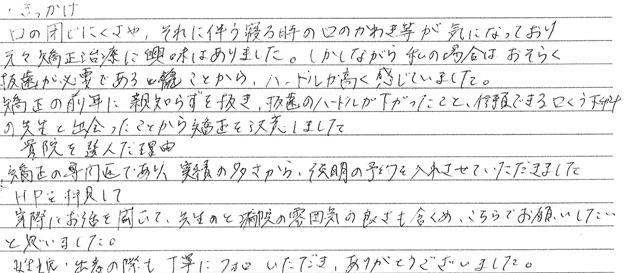 ・きっかけ
口の閉じにくさや、それに伴う寝る時の口のかわき等が気になっており
元々矯正治療に興味はありました。しかしながら私の場合はおそらく
抜歯が必要であると聞くことから、ハードルが高く感じていました。
矯正の前年に親知らずを抜き、抜歯のハードルが下がったこと、信頼できる口くう外科
の先生と出会ったことから矯正を決意しました
貴院を選んだ理由
矯正の専門医であり、実績の多さから、説明の予約を入れさせていただきました
HPを拝見して
実際にお話を聞いて、先生のと病院の雰囲気の良さも含め、こちらでお願いしたい
と思いました。
妊娠・出産の際も丁寧にフォローいただき、ありがとうございました。